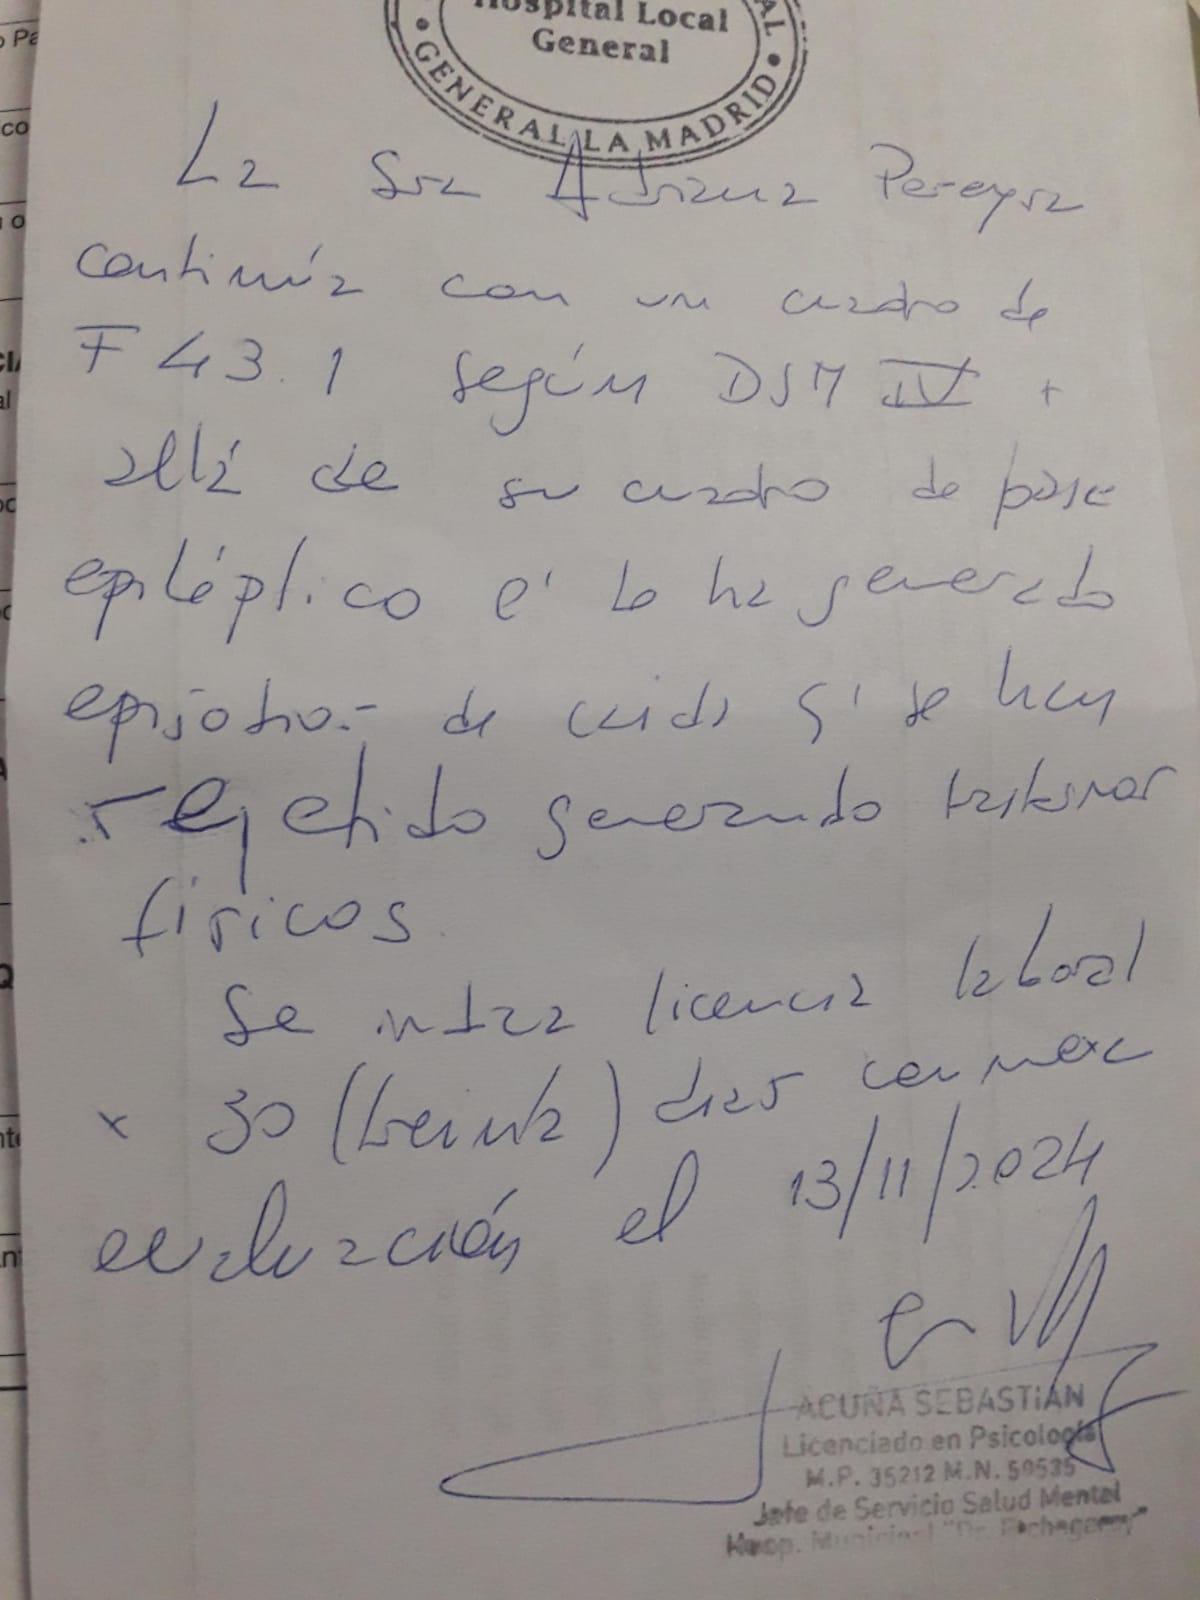 Hospital Local
General
GENERAL LA MADRID
La Sra Adriana Pereyra
continúa con un cuadro de
F 43.1 según DSM IV +
allá de su cuadro de base
epiléptico e' lo ha generado
episodios de caída q' se han
repetido generando trastornos
físicos.
Se licencia laboral
x 30 (treinta) días con nueva
evaluación el 13/11/2024
ACUÑA SEBASTIÁN
Licenciado en Psicología
M.P. 35212 M.N. 59535
Jefe de Servicio Salud Mental
Hosp. Municipal